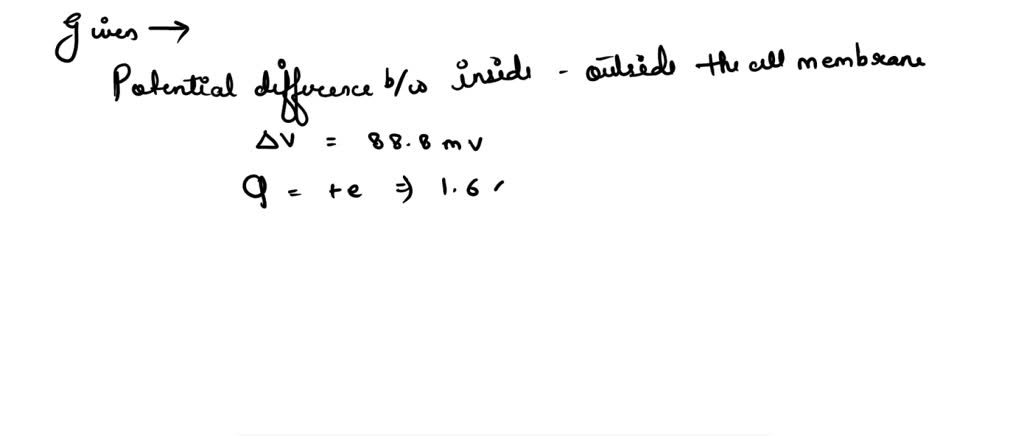 Given →
Potential difference b/w inside - outside the cell membrane
ΔV = 88.8 mv
q = +e ⇒ 1.6